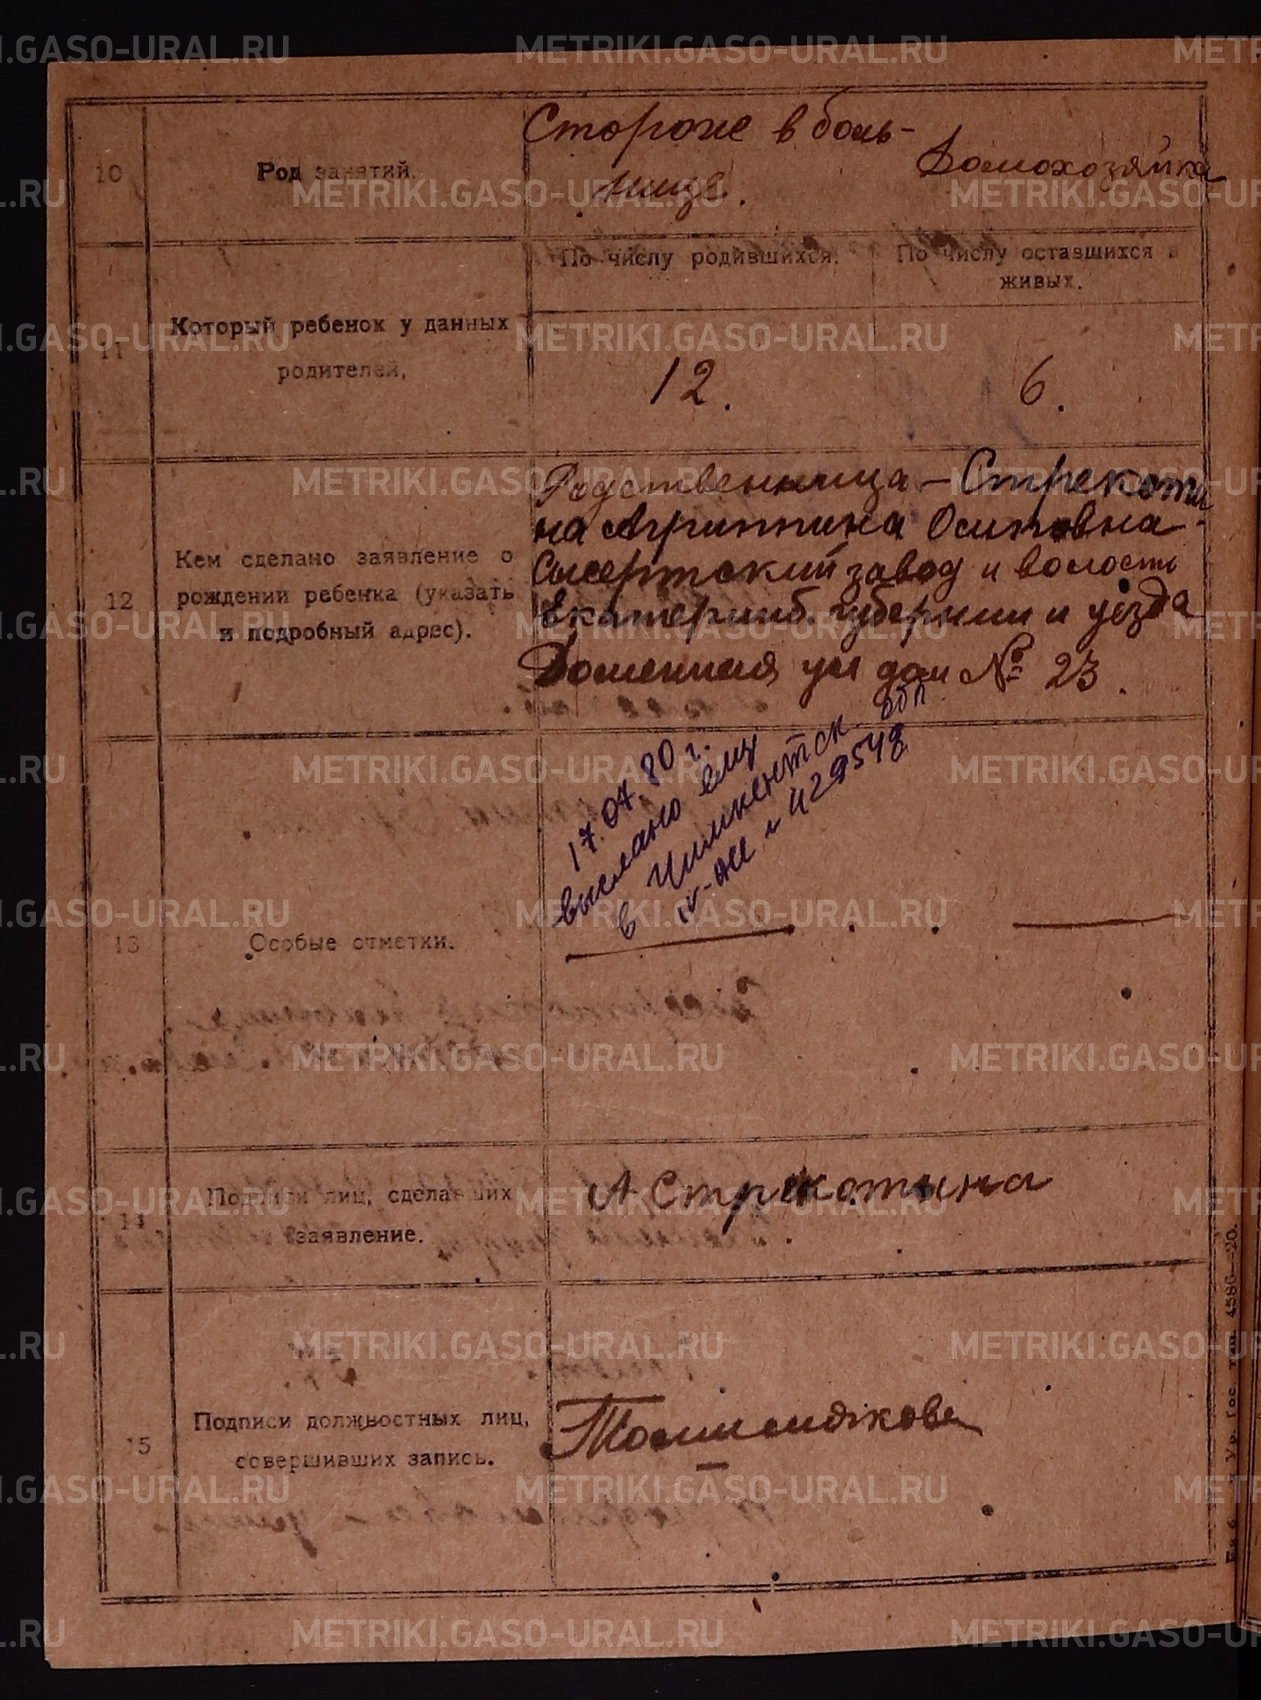 METRIKI.GASO-URAL.RU
10
Род занятий.
Стороже в боль-
нице.
Домохозяйка
11
Который ребенок у данных
родителей,
По числу родившихся.
По числу оставшихся в
живых.
12.
6.
12
Кем сделано заявление о
рождении ребенка (указать
и подробный адрес).
Родственница - Стрекоти
на Агриппина Осиповна -
Сысертский завод и волость
Екатеринб. губернии и уезда
Доменная ул дом № 23.
13
Особые отметки.
17.07.80 г.
выслано ему
в Чимкентск обл
IV-АИ № 429548
14
Подписи лиц, сделавших
заявление.
А Стрекотина
15
Подписи должностных лиц,
совершивших запись.
Ур. Гос. тип. 4586—20.